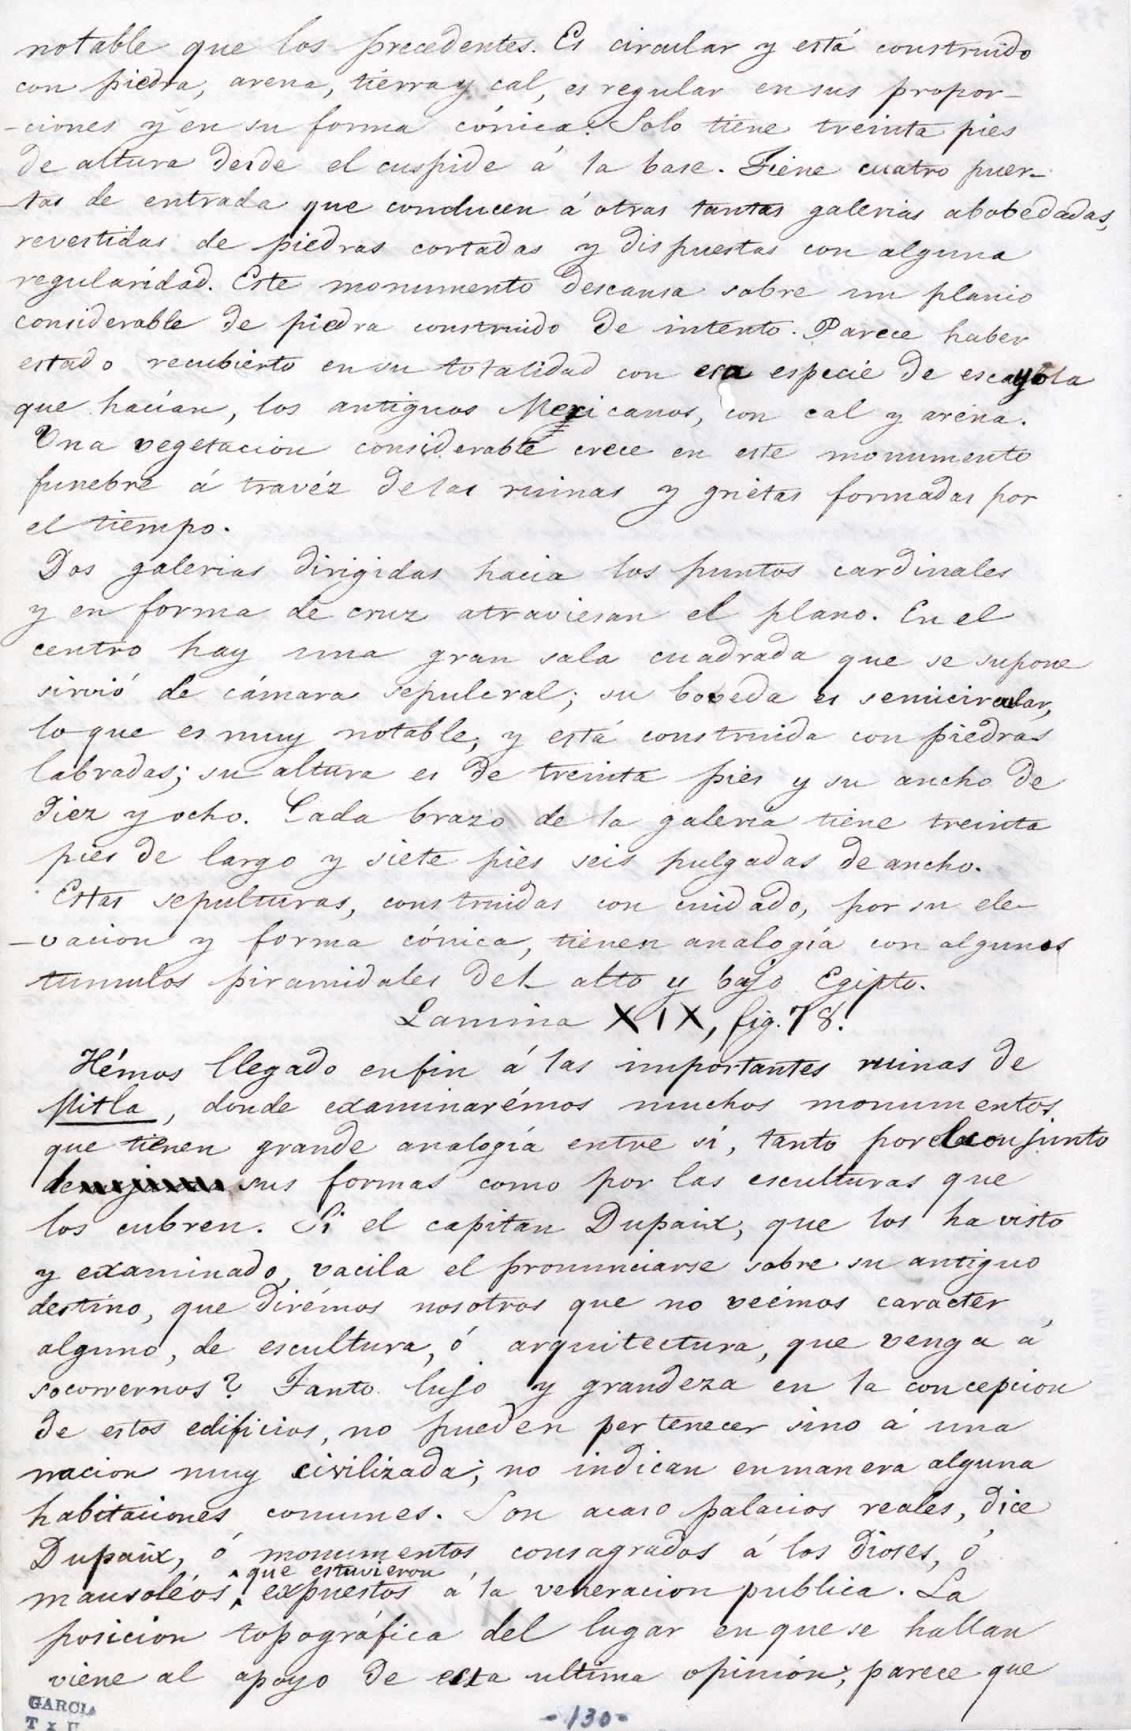 notable que los precedentes. Es circular y está construido
con piedra, arena, tierra y cal, es regular en sus propor-
-ciones y en su forma cónica. Solo tiene treinta pies
de altura desde el cuspide á la base. Tiene cuatro puer-
-tas de entrada que conducen á otras tantas galerias abobedadas,
revestidas de piedras cortadas y dispuestas con alguna
regularidad. Este monumento descansa sobre un planio
considerable de piedra construido de intento. Parece haber
estado recubierto en su totalidad con esa especie de escayola
que hacían, los antiguos Mexicanos, con cal y arena.
Una vegetacion considerable crece en este monumento
funebre á travéz de las ruinas y grietas formadas por
el tiempo.
Dos galerias dirigidas hacia los puntos cardinales
y en forma de cruz atraviesan el plano. En el
centro hay una gran sala cuadrada que se supone
sirvió de cámara sepulcral; su boveda es semicircular,
lo que es muy notable, y está construida con piedras
labradas; su altura es de treinta pies y su ancho de
diez y ocho. Cada brazo de la galeria tiene treinta
pies de largo y siete pies seis pulgadas de ancho.
Estas sepulturas, construidas con cuidado, por su ele-
-vacion y forma cónica, tienen analogía con algunos
tumulos piramidales del alto y bajo Egipto.
Lamina XIX, fig. 78.
Hémos llegado en fin á las importantes ruinas de
Mitla, donde examinarémos muchos monumentos
que tienen grande analogía entre sí, tanto por el conjunto
de sus formas como por las esculturas que
los cubren. Si el capitan Dupaix, que los ha visto
y examinado, vacila el pronunciarse sobre su antiguo
destino, que dirémos nosotros que no veémos caracter
alguno, de escultura, ó arquitectura, que venga á
socorrernos? Tanto lujo y grandeza en la concepcion
de estos edificios, no pueden pertenecer sino á una
nacion muy civilizada; no indican en manera alguna
habitaciones comunes. Son acaso palacios reales, dice
Dupaix, ó monumentos consagrados á los dioses, ó
que estuvieron
mausoléos, expuestos á la veneracion publica. La
posicion topográfica del lugar en que se hallan
viene al apoyo de esta ultima opinión; parece que
GARCIA
-130-